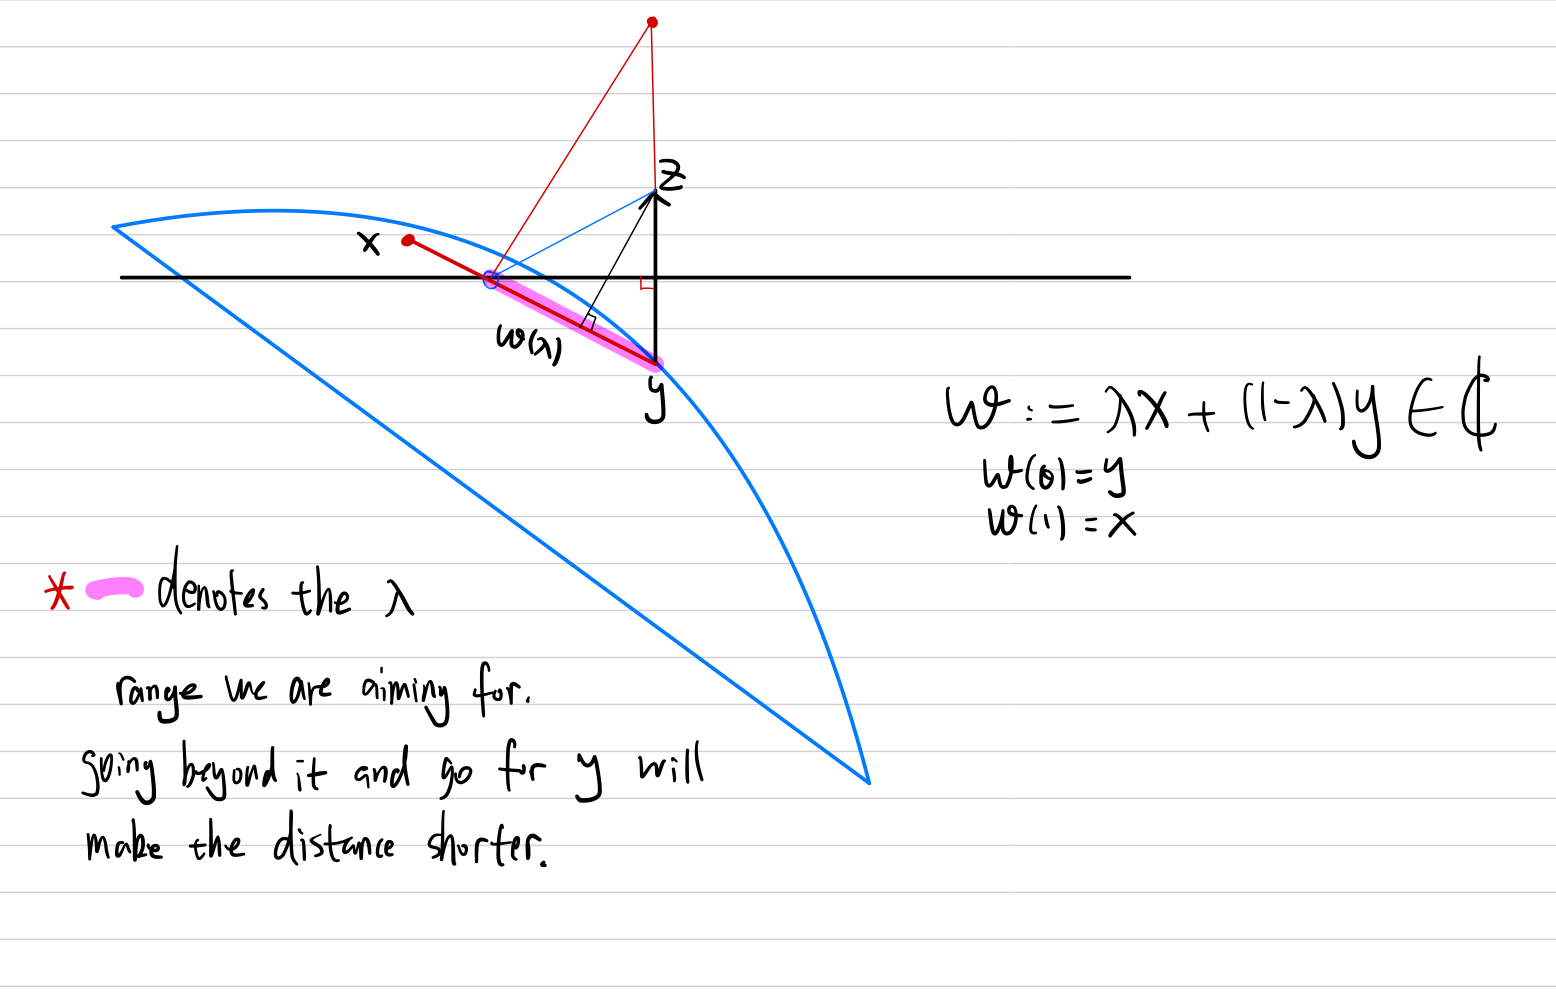 z
x
w(λ)
y
w := λx + (1-λ)y ∈ ₵
w(0) = y
w(1) = x
* denotes the λ
range we are aiming for.
going beyond it and go for y will
make the distance shorter.